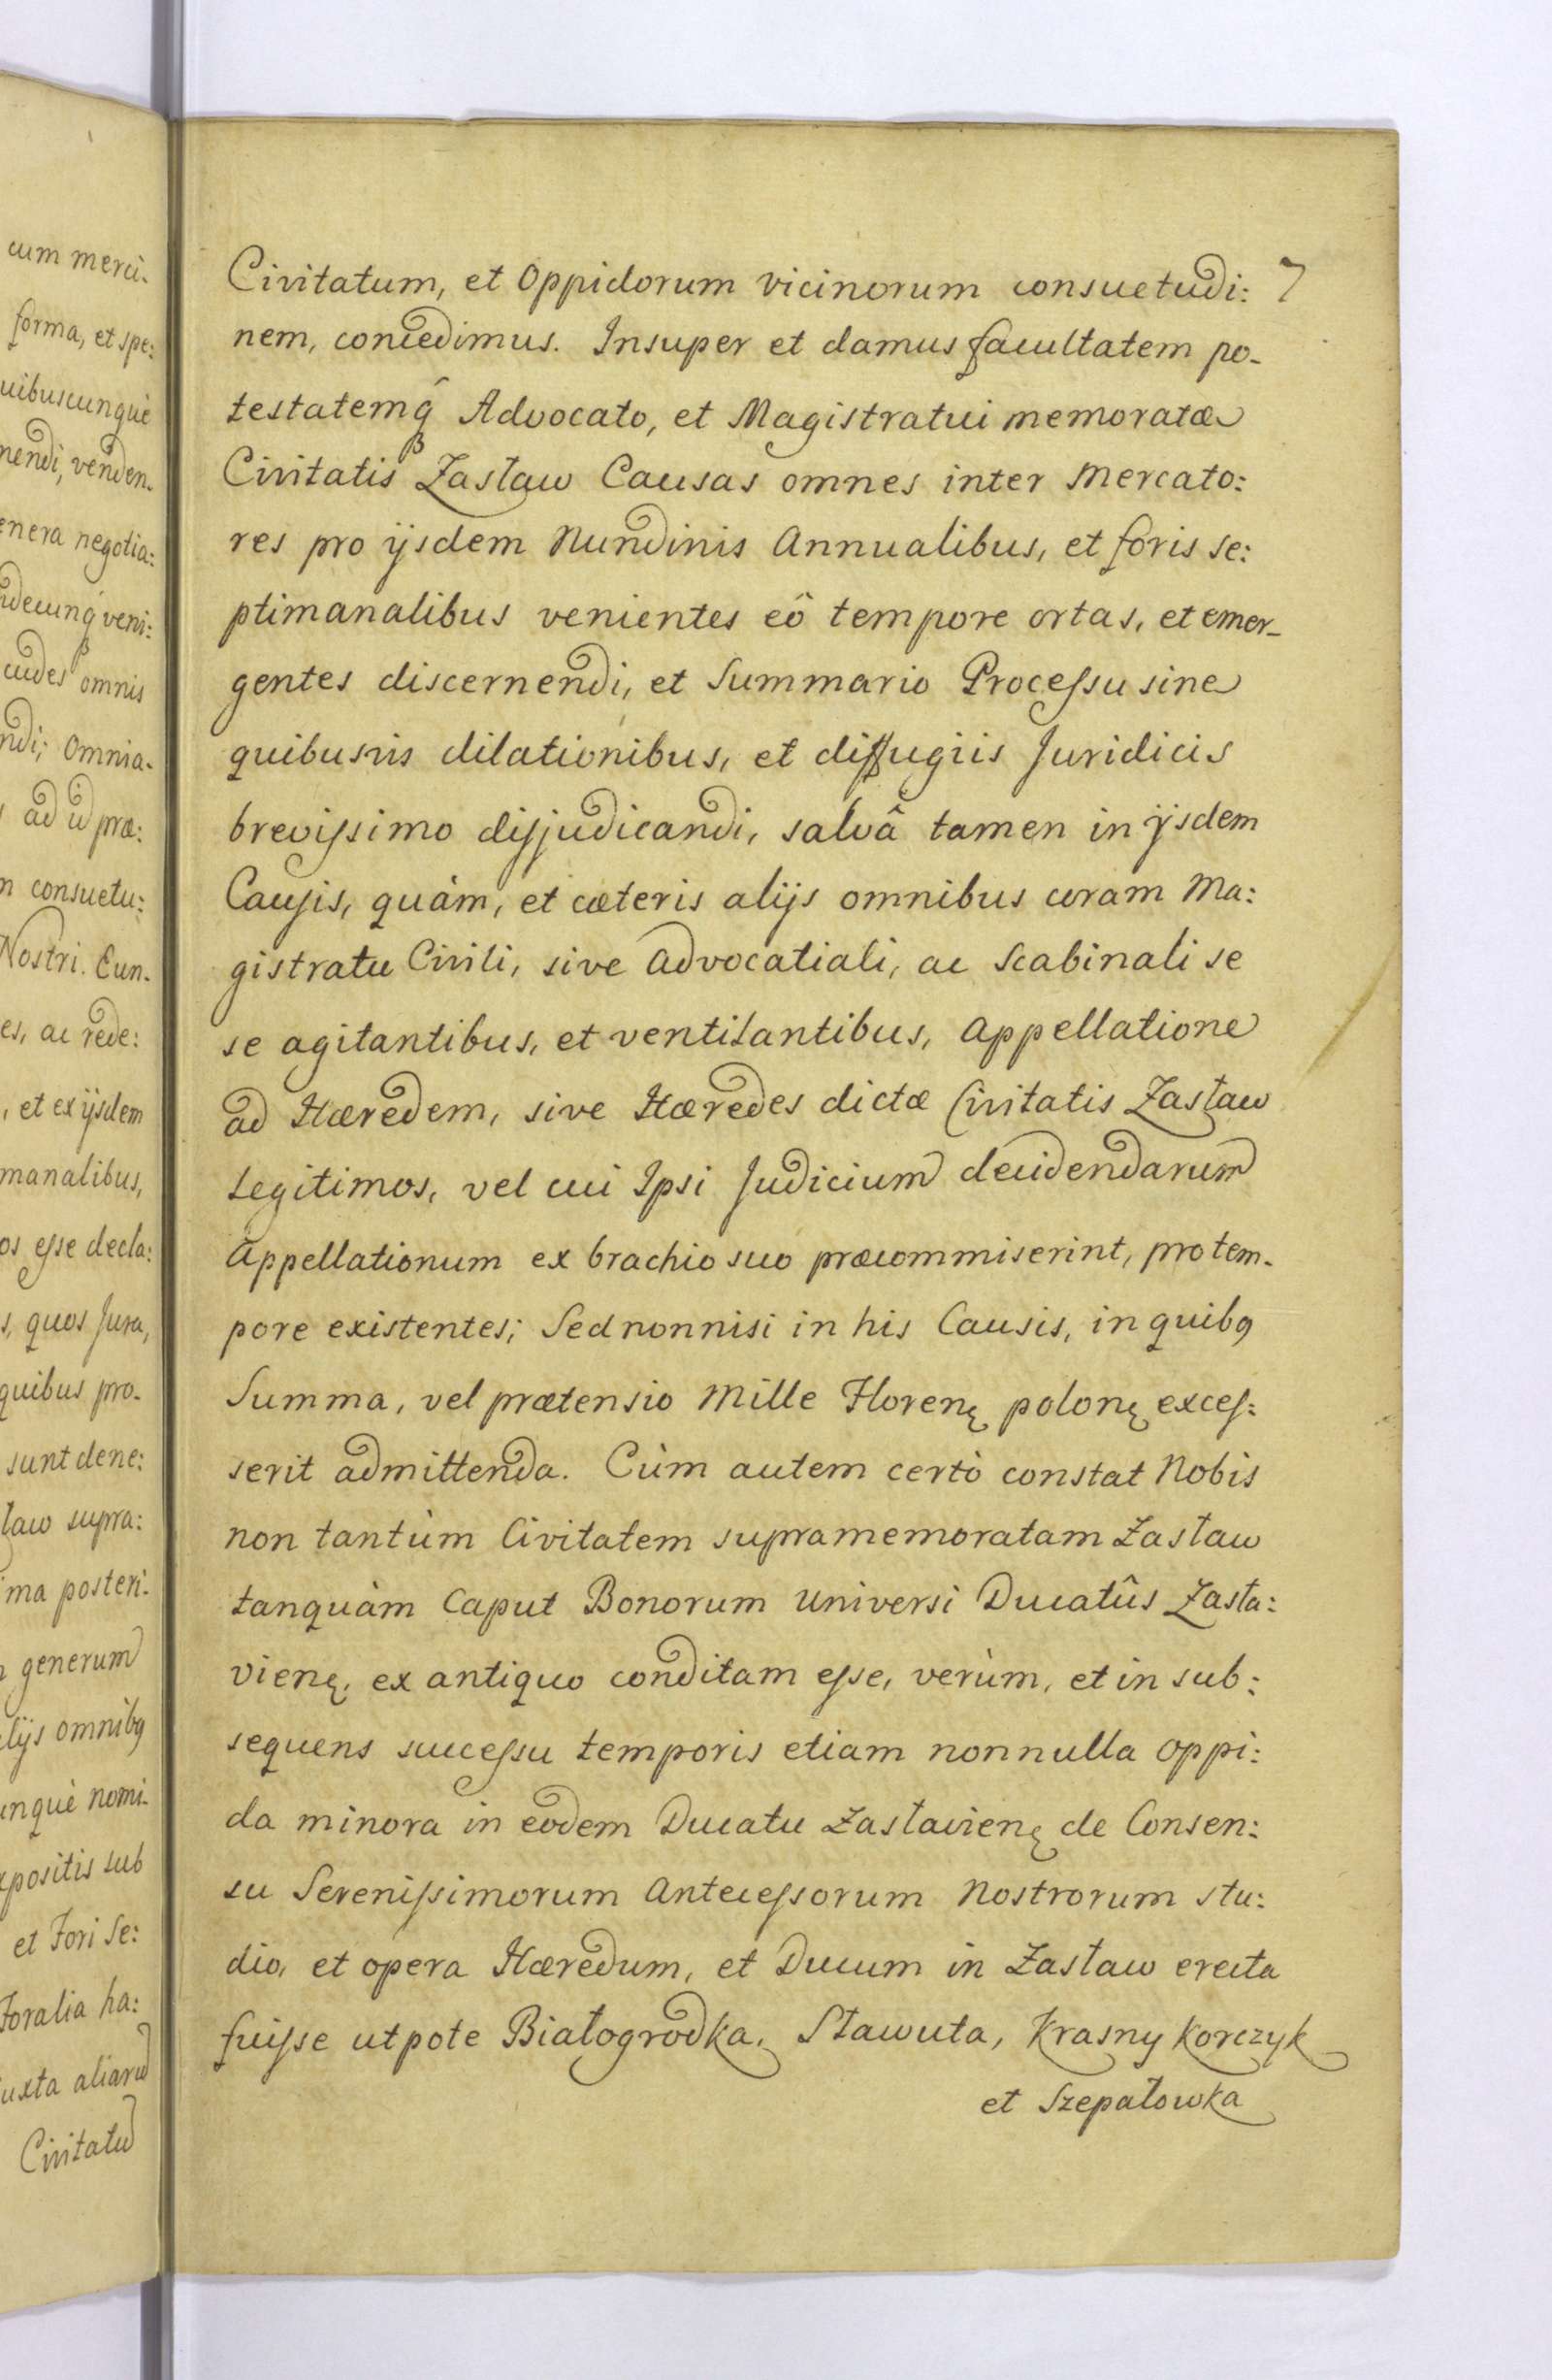 cum merci-
forma, et spe:
uibuscunquè
nendi, venden-
enera negotia:
ndecunq́ veni:
cudes omnis
ndi; Omnia-
ad id præ:
n consuetu:
Nostri. Cun-
es, ac rede:
, et ex ijsdem
manalibus,
os eſse decla:
s, quos Jura,
quibus pro-
sunt dene:
ław supra:
ma posteri-
generum
lijs omnibꝯ
unquè nomi-
xpositis sub
et Fori Se:
Foralia ha:
uxta aliarū
Civitatū
Civitatum, et Oppidorum vicinorum consuetudi: 7
nem, concedimus. Insuper et damus facultatem po-
testatemq́ Advocato, et Magistratui memoratæ
Civitatis Zasław Causas omnes inter Mercato:
res pro ijsdem Nundinis Annualibus, et foris se:
ptimanalibus venientes eô tempore ortas, et emer-
gentes discernendi, et Summario Proceſsu sine
quibusvis dilationibus, et diffugiis Juridicis
breviſsimo disjudicandi, salvâ tamen in ijsdem
Causis, quàm, et cæteris alijs omnibus coram Ma:
gistratu Civili, sive Advocatiali, ac Scabinali se
se agitantibus, et ventilantibus, Appellatione
ad Hæredem, sive Hæredes dictæ Civitatis Zasław
Legitimos, vel cui Ipsi Judicium decidendarum
Appellationum ex brachio suo præcommiserint, pro tem-
pore existentes; Sed nonnisi in his Causis, in quibꝯ
Summa, vel prætensio Mille Florenę polonę exceſ:
serit admittenda. Cùm autem certò constat Nobis
non tantùm Civitatem supramemoratam Zasław
tanquàm Caput Bonorum Universi Ducatûs Zasła:
vienę, ex antiquo conditam eſse, verùm, et in sub:
sequens succeſsu temporis etiam nonnulla Oppi:
da minora in eodem Ducatu Zasłavienę de Consen:
su Sereniſsimorum Anteceſsorum Nostrorum stu:
dio, et opera Hæredum, et Ducum in Zasław erecta
fuiſse utpote Białogrodka, Sławuta, Krasny Korczyk
et Szepatowka